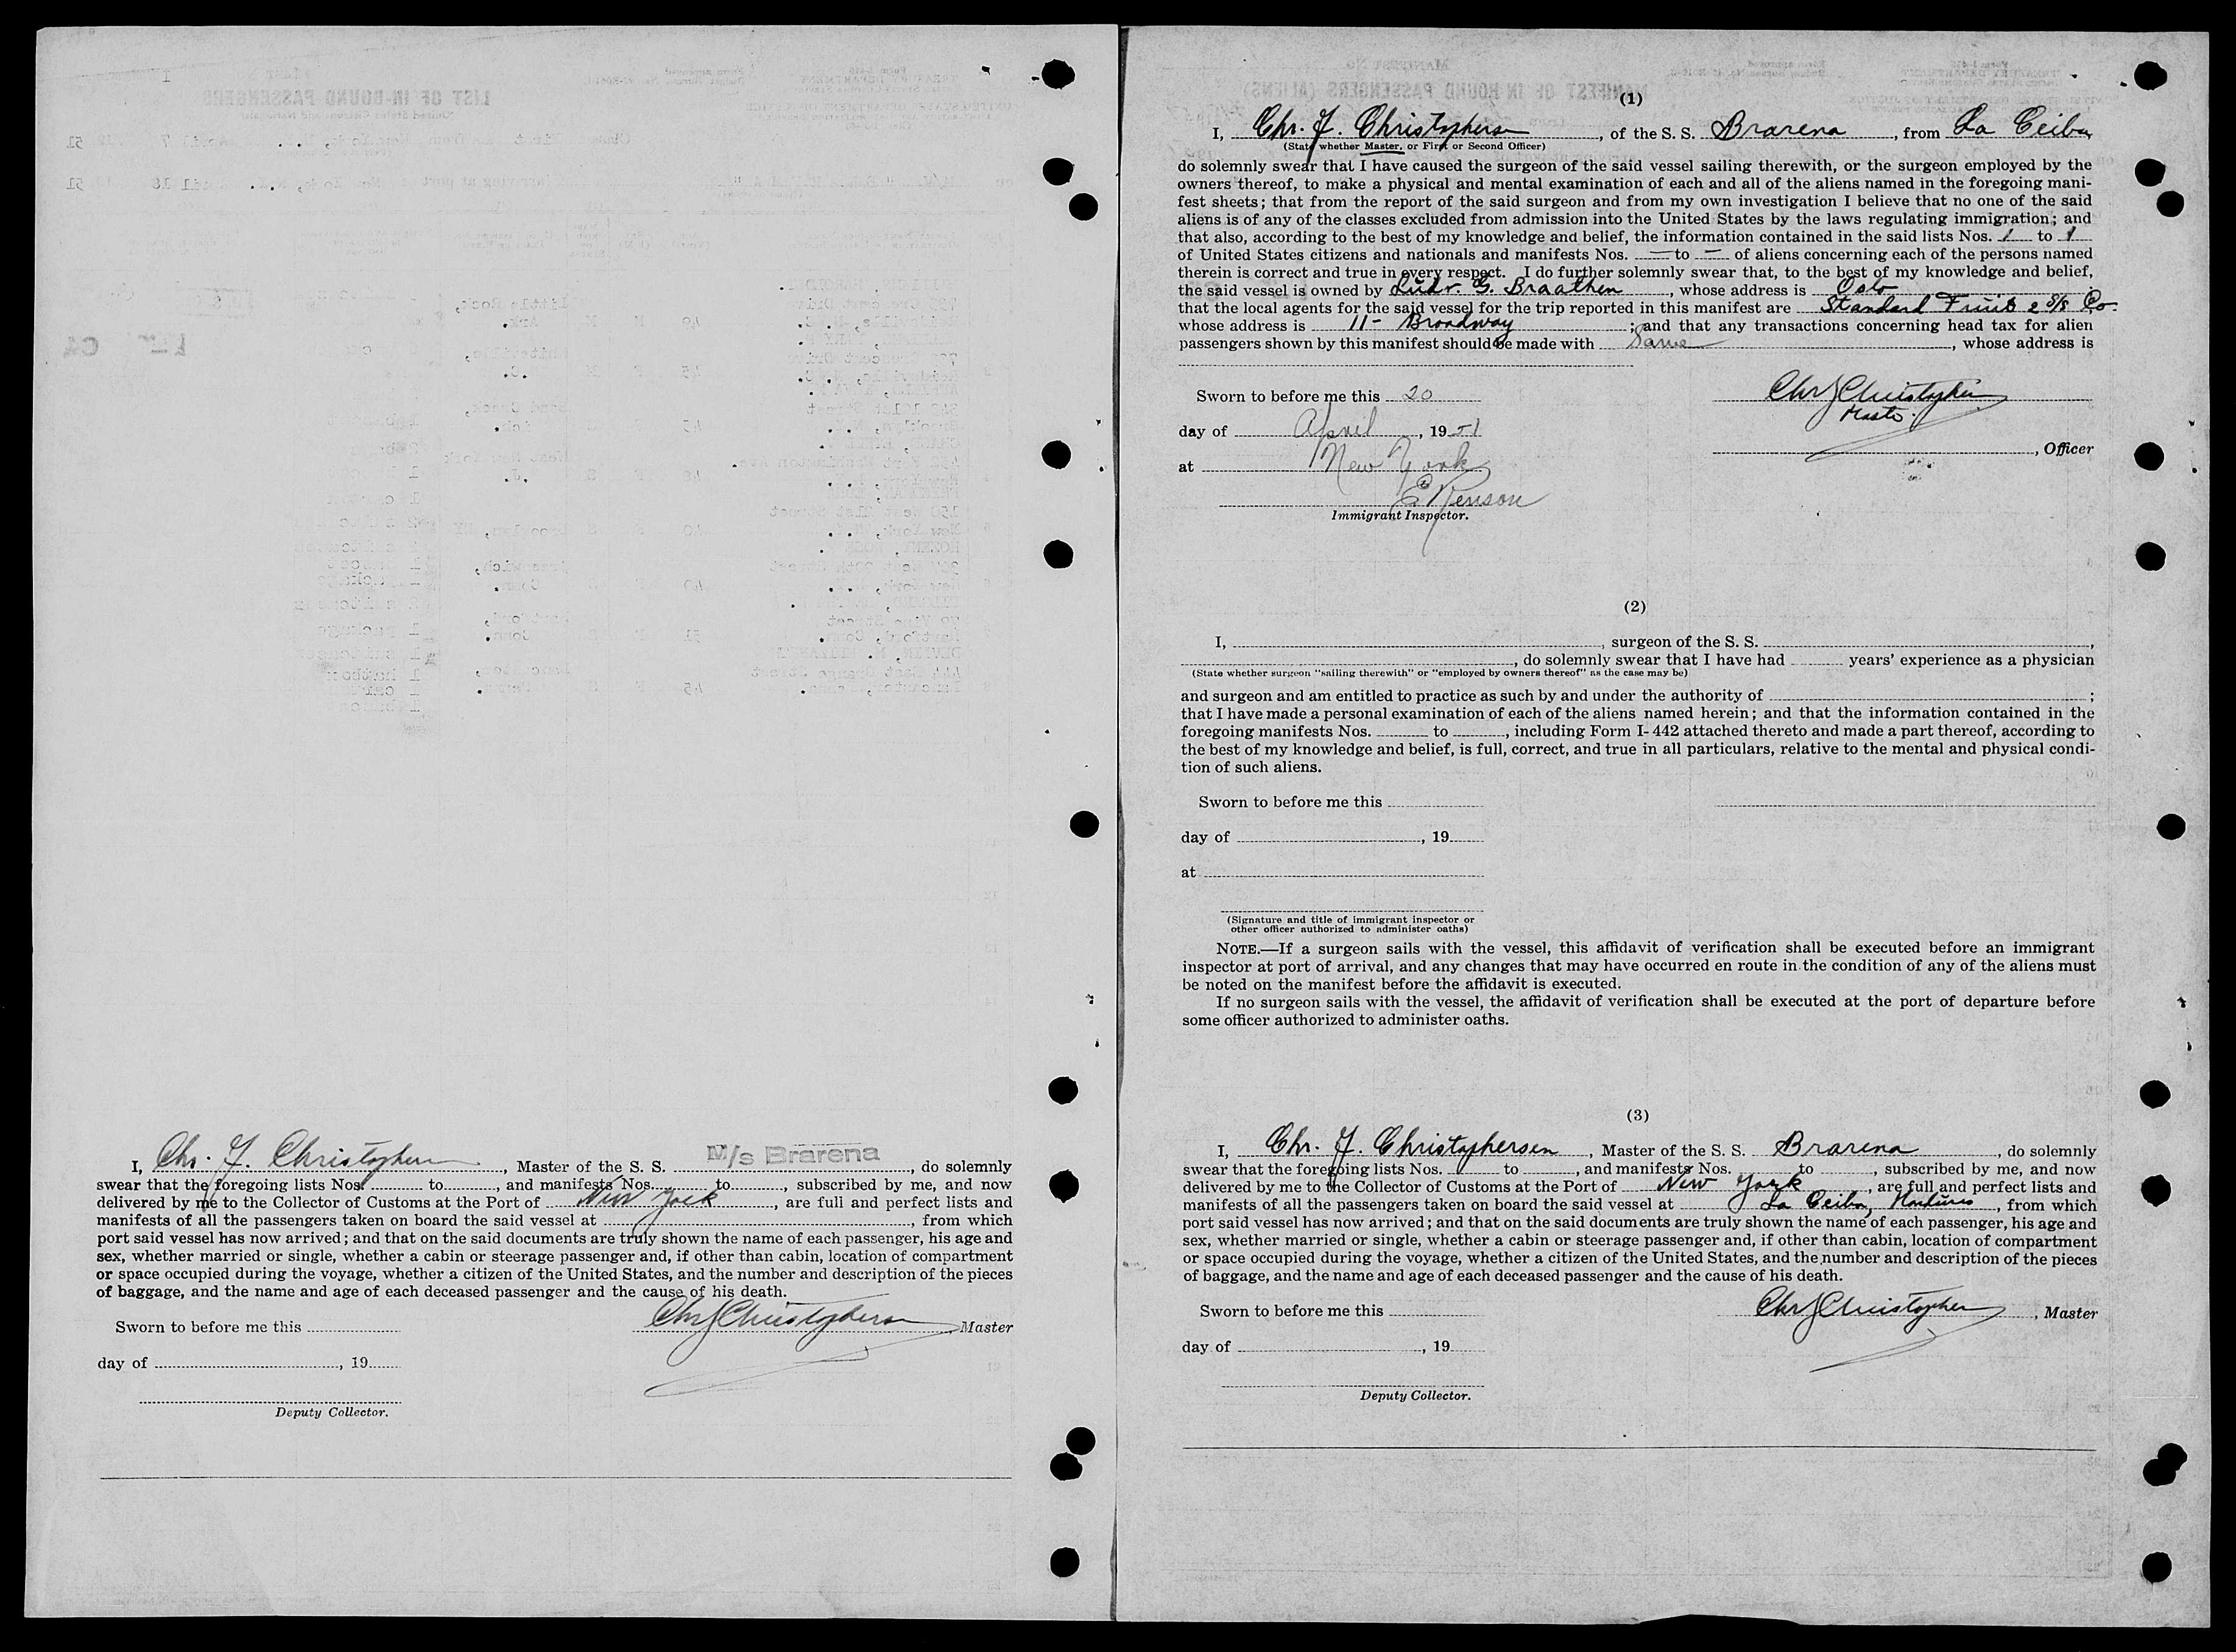 I, Chr. F. Christophersen, Master of the S. S. M/s Brarena, do solemnly
swear that the foregoing lists Nos. to , and manifests Nos. to , subscribed by me, and now
delivered by me to the Collector of Customs at the Port of New York, are full and perfect lists and
manifests of all the passengers taken on board the said vessel at , from which
port said vessel has now arrived; and that on the said documents are truly shown the name of each passenger, his age and
sex, whether married or single, whether a cabin or steerage passenger and, if other than cabin, location of compartment
or space occupied during the voyage, whether a citizen of the United States, and the number and description of the pieces
of baggage, and the name and age of each deceased passenger and the cause of his death.
Chr F Christophersen
Sworn to before me this , Master
day of , 19
Deputy Collector.
(1)
I, Chr. F. Christophersen, of the S. S. Brarena, from La Ceiba
(State whether Master, or First or Second Officer)
do solemnly swear that I have caused the surgeon of the said vessel sailing therewith, or the surgeon employed by the
owners thereof, to make a physical and mental examination of each and all of the aliens named in the foregoing mani-
fest sheets; that from the report of the said surgeon and from my own investigation I believe that no one of the said
aliens is of any of the classes excluded from admission into the United States by the laws regulating immigration; and
that also, according to the best of my knowledge and belief, the information contained in the said lists Nos. 1 to 1
of United States citizens and nationals and manifests Nos. — to — of aliens concerning each of the persons named
therein is correct and true in every respect. I do further solemnly swear that, to the best of my knowledge and belief,
the said vessel is owned by Ludv. G. Braathen, whose address is Oslo
that the local agents for the said vessel for the trip reported in this manifest are Standard Fruit & S/S Co.
whose address is 11- Broadway; and that any transactions concerning head tax for alien
passengers shown by this manifest should be made with Same, whose address is
Sworn to before me this 20 Chr F Christophersen
Master.
day of April, 1951
, Officer
at New York
E Renson
Immigrant Inspector.
(2)
I, , surgeon of the S. S. ,
, do solemnly swear that I have had years' experience as a physician
(State whether surgeon "sailing therewith" or "employed by owners thereof" as the case may be)
and surgeon and am entitled to practice as such by and under the authority of ;
that I have made a personal examination of each of the aliens named herein; and that the information contained in the
foregoing manifests Nos. to , including Form I-442 attached thereto and made a part thereof, according to
the best of my knowledge and belief, is full, correct, and true in all particulars, relative to the mental and physical condi-
tion of such aliens.
Sworn to before me this
day of , 19
at
(Signature and title of immigrant inspector or
other officer authorized to administer oaths)
NOTE.—If a surgeon sails with the vessel, this affidavit of verification shall be executed before an immigrant
inspector at port of arrival, and any changes that may have occurred en route in the condition of any of the aliens must
be noted on the manifest before the affidavit is executed.
If no surgeon sails with the vessel, the affidavit of verification shall be executed at the port of departure before
some officer authorized to administer oaths.
(3)
I, Chr. F. Christophersen, Master of the S. S. Brarena, do solemnly
swear that the foregoing lists Nos. to , and manifests Nos. to , subscribed by me, and now
delivered by me to the Collector of Customs at the Port of New York, are full and perfect lists and
manifests of all the passengers taken on board the said vessel at La Ceiba, Honduras, from which
port said vessel has now arrived; and that on the said documents are truly shown the name of each passenger, his age and
sex, whether married or single, whether a cabin or steerage passenger and, if other than cabin, location of compartment
or space occupied during the voyage, whether a citizen of the United States, and the number and description of the pieces
of baggage, and the name and age of each deceased passenger and the cause of his death.
Sworn to before me this Chr F Christophersen, Master
day of , 19
Deputy Collector.